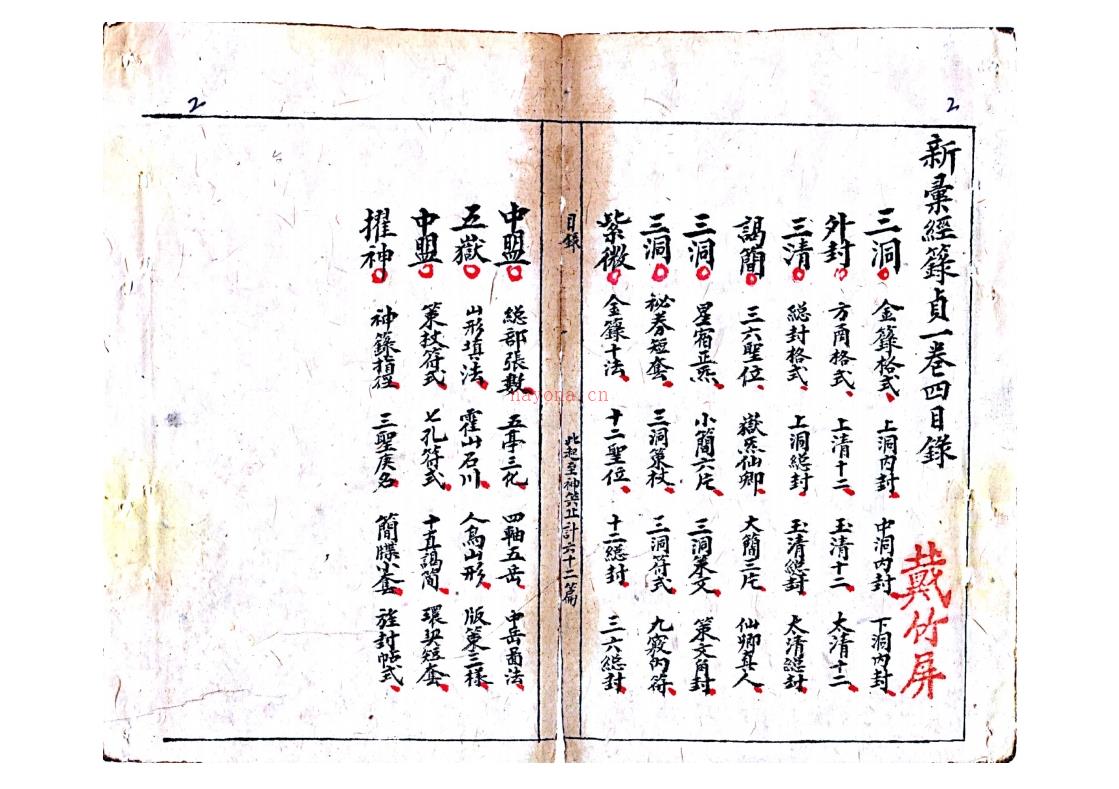 2
2
新彙經籙貞一卷四目錄
戴竹屏
三洞 金籙格式 上洞內封 中洞內封 下洞內封
外封 方角格式 上清十二 玉清十二 太清十二
三清 総封格式 上洞総封 玉清総封 太清総封
謁簡 三六聖位 嶽炁仙卿 大簡三片 仙卿真人
三洞 星宿正炁 小簡六片 三洞策文 策文角封
三洞 祕券短套 三洞策杖 三洞符式 九竅內符
紫微 金籙十法 十二聖位 十二総封 三六総封
目錄
此起至神共止計六十二篇
中盟 総部張數 五亭三化 四軸五岳 中岳啚法
五嶽 山形填法 霍山石川 人鳥山形 版策三樣
中盟 策杖符式 七孔符式 十直謁簡 環券短套
擢神 神籙指徑 三聖戾名 簡牒小套 旌封帖式
nayona.cn